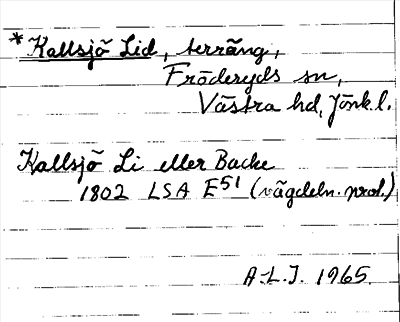 *Kallsjö Lid, terräng,
Fröderyds sn,
Västra hd, Jönk.l.
Kallsjö Li eller Backe
1802 LSA E51 (vägdeln. prot.)
A.L.J. 1965.